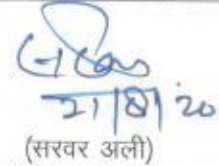 21/8/20
(सरवर अली)